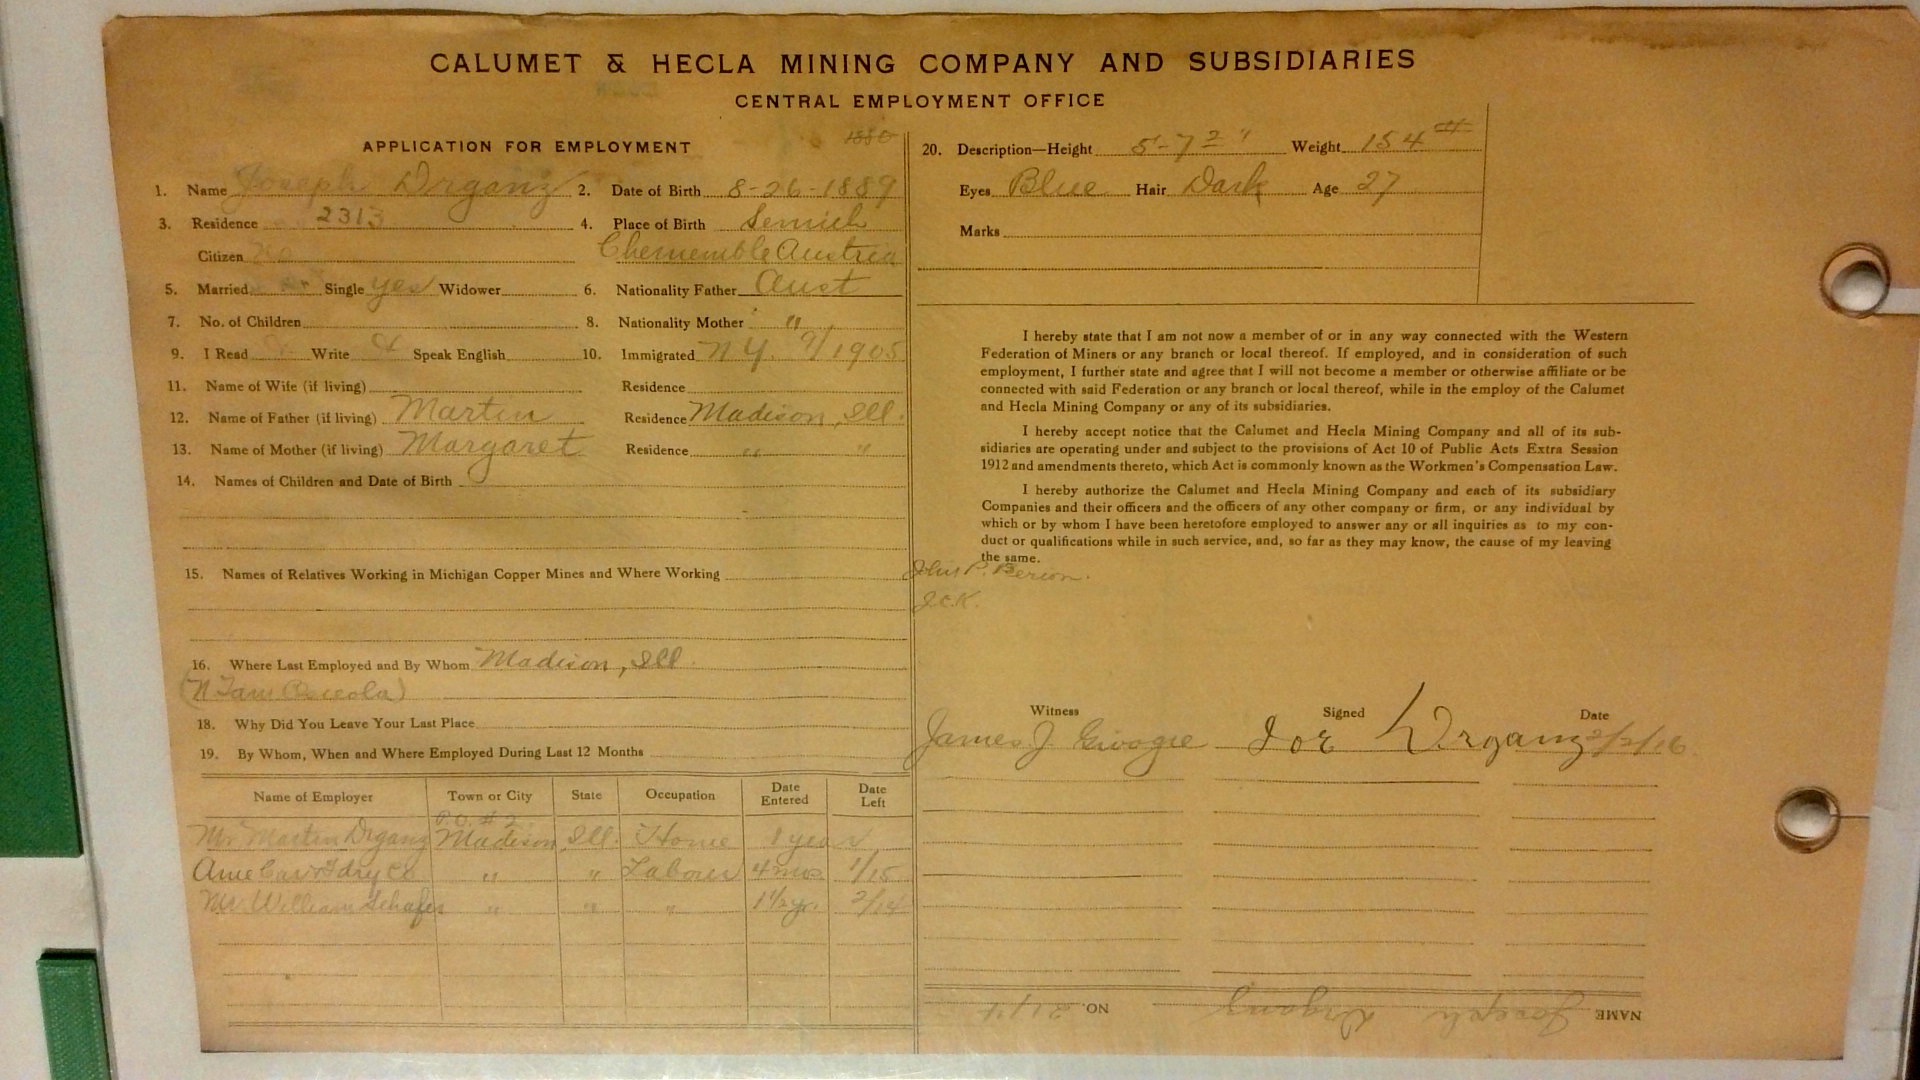 CALUMET & HECLA MINING COMPANY AND SUBSIDIARIES
CENTRAL EMPLOYMENT OFFICE
APPLICATION FOR EMPLOYMENT
1. Name Joseph Drganz 2. Date of Birth 8-26-1889
3. Residence 2313 4. Place of Birth Semich
Citizen No Austria
5. Married Single yes Widower 6. Nationality Father Aust
7. No. of Children 8. Nationality Mother "
9. I Read Write Speak English 10. Immigrated N.Y. 9/1905
11. Name of Wife (if living) Residence
12. Name of Father (if living) Martin Residence Madison, Ill.
13. Name of Mother (if living) Margaret Residence " "
14. Names of Children and Date of Birth
15. Names of Relatives Working in Michigan Copper Mines and Where Working
16. Where Last Employed and By Whom Madison, Ill.
18. Why Did You Leave Your Last Place
19. By Whom, When and Where Employed During Last 12 Months
Name of Employer Town or City State Occupation Date Entered Date Left
P.O. #2
Mr Martin Drganz Madison Ill. Home 1 year
Ame Car & Fdry Co " " Laborer 4 mos 1/15
Mr. William Schafer " " " 1 1/2 yr. 2/14
20. Description—Height 5-7 2" Weight 154 #
Eyes Blue Hair Dark Age 27
Marks
I hereby state that I am not now a member of or in any way connected with the Western
Federation of Miners or any branch or local thereof. If employed, and in consideration of such
employment, I further state and agree that I will not become a member or otherwise affiliate or be
connected with said Federation or any branch or local thereof, while in the employ of the Calumet
and Hecla Mining Company or any of its subsidiaries.
I hereby accept notice that the Calumet and Hecla Mining Company and all of its sub-
sidiaries are operating under and subject to the provisions of Act 10 of Public Acts Extra Session
1912 and amendments thereto, which Act is commonly known as the Workmen's Compensation Law.
I hereby authorize the Calumet and Hecla Mining Company and each of its subsidiary
Companies and their officers and the officers of any other company or firm, or any individual by
which or by whom I have been heretofore employed to answer any or all inquiries as to my con-
duct or qualifications while in such service, and, so far as they may know, the cause of my leaving
the same.
John P.
Witness Signed Date
James J. Joe Drganz 2/2/16
NAME Joseph Drganz NO.